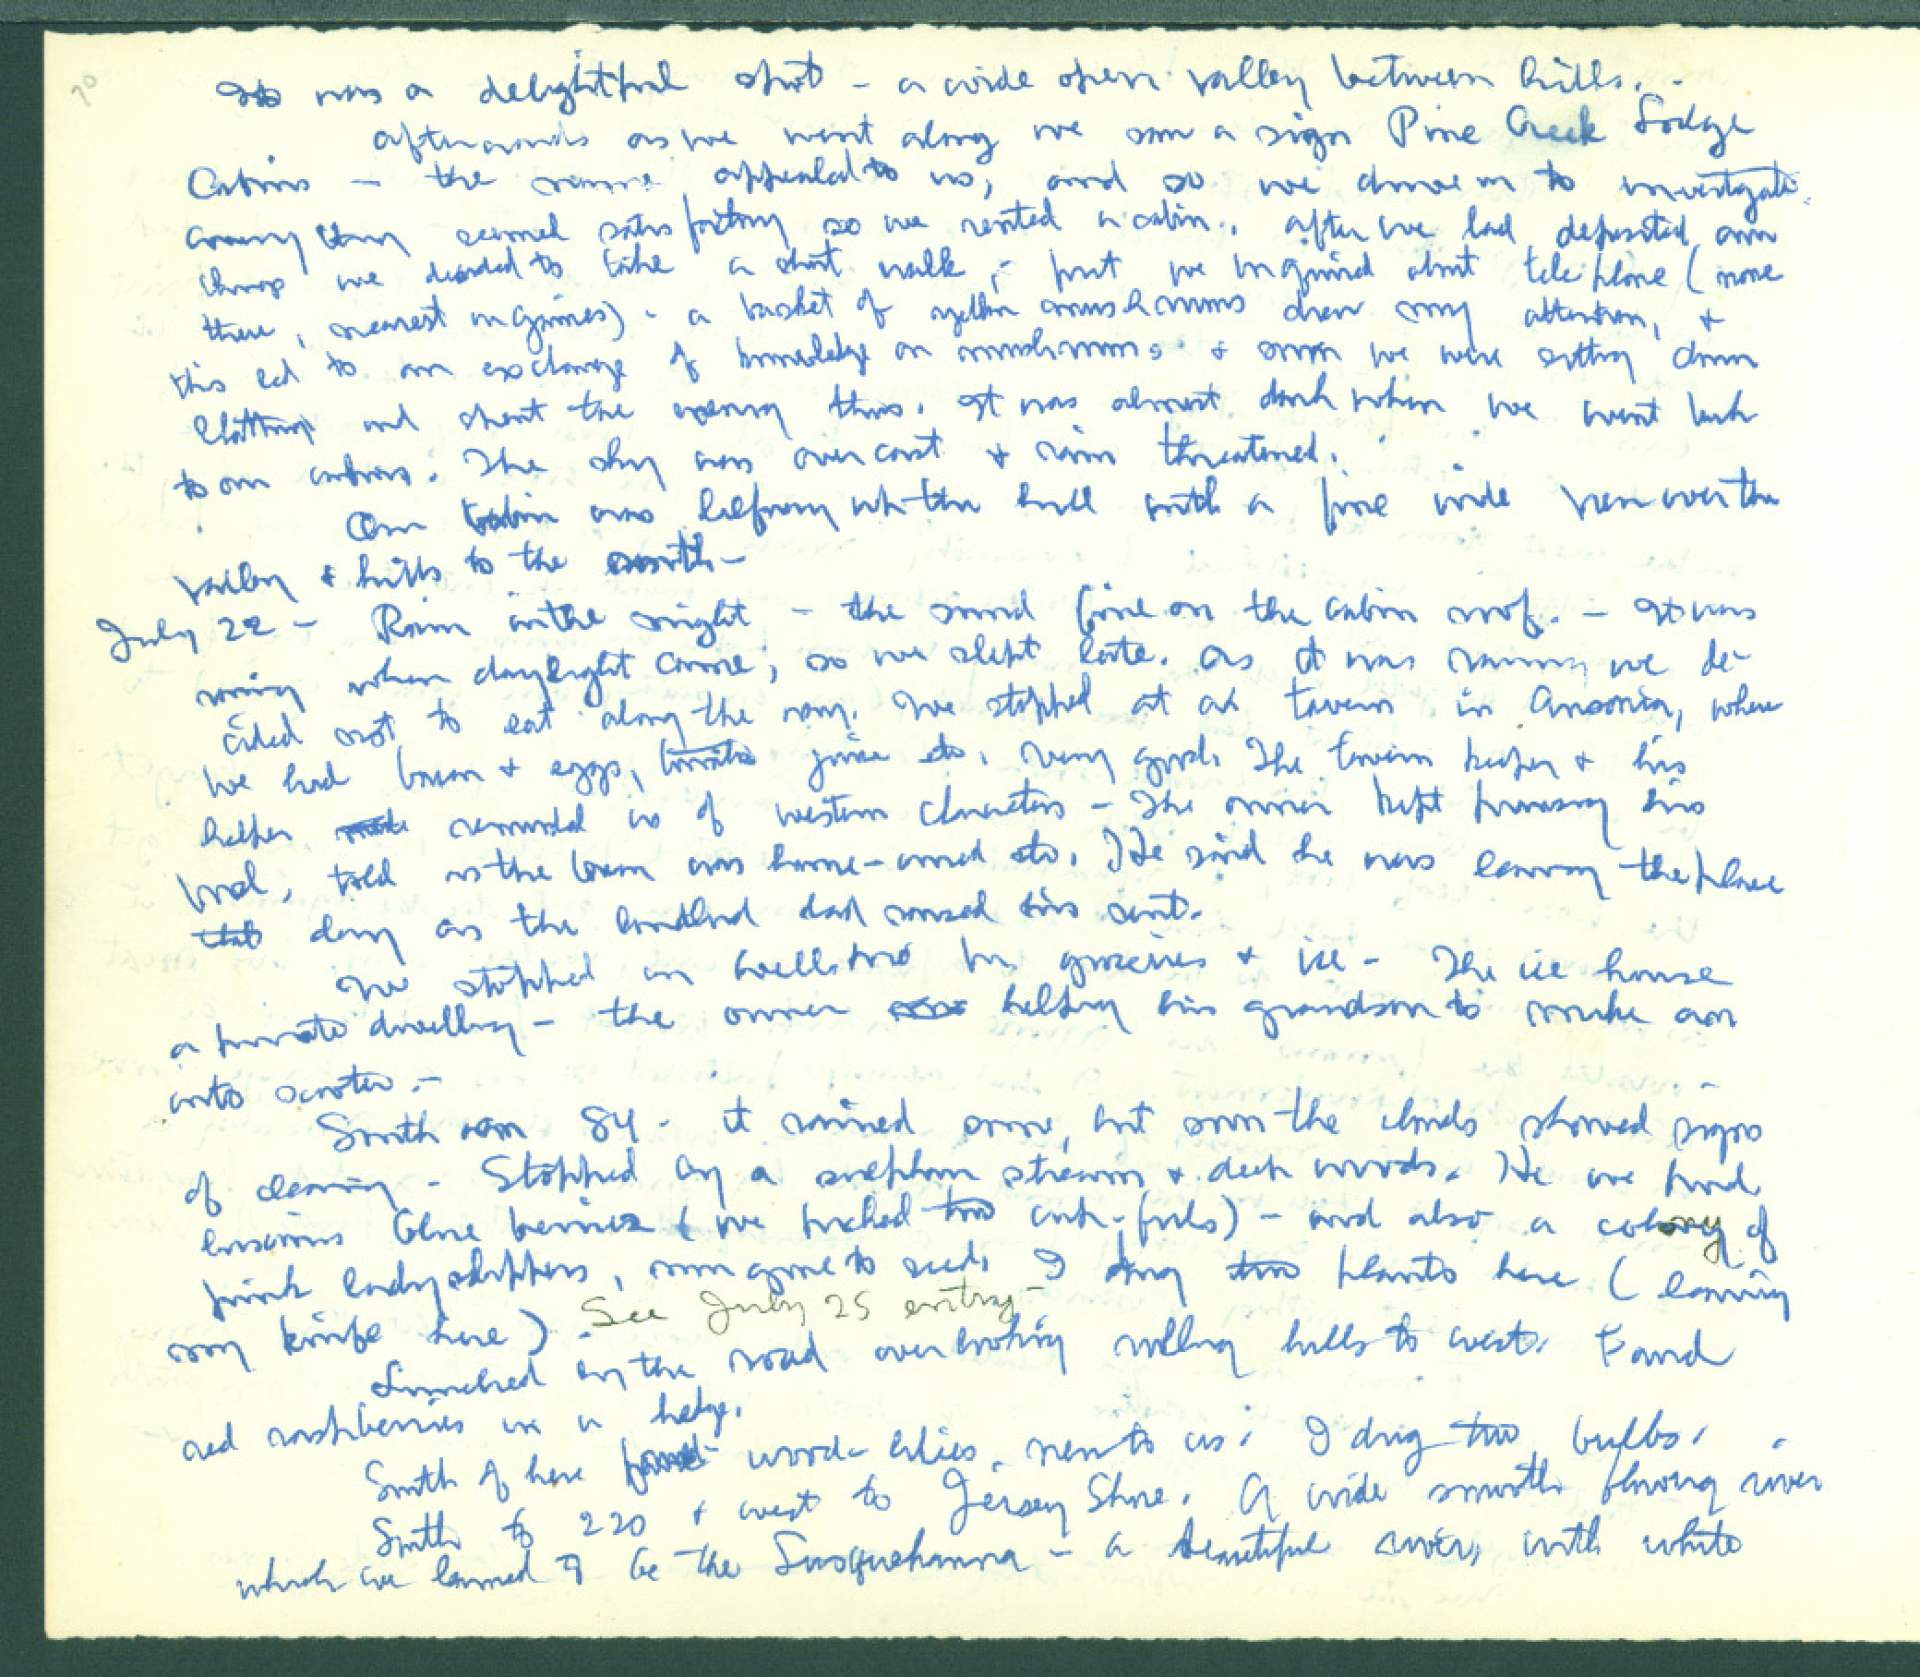 70
It was a delightful spot - a wide open valley between hills. -
Afterwards as we went along we saw a sign Pine Creek Lodge
Cabins - the name appealed to us, and so we drove in to investigate.
Everything seemed satisfactory so we rented a cabin. After we had deposited our
things we decided to take a short walk, - but we inquired about telephone (none
there, nearest in Gaines) - a basket of yellow mushrooms drew my attention, +
this led to an exchange of knowledge on mushrooms + soon we were sitting down
chatting and spent the evening thus. It was almost dark when we went back
to our cabins. The sky was overcast + rain threatened.
Our cabin was halfway up the hill with a fine wide view over the
valley + hills to the south -
July 22 - Rain in the night - the sound fine on the cabin roof. - It was
raining when daylight came, so we slept late. As it was raining we de-
cided not to eat along the way. We stopped at a tavern in Ansonia, where
we had bacon + eggs, tomato juice etc. very good. The tavern keeper + his
helper reminded us of western characters - The owner kept praising his
food, told us the bacon was home-cured etc. He said he was leaving the place
that day as the landlord had raised his rent.
We stopped in Wellsboro for groceries + ice - The ice house
a private dwelling - the owner helping his grandson to make an
auto scooter. -
South on 84 - it rained some, but soon the clouds showed signs
of clearing - Stopped by a sulphur stream + deep woods. He we found
luscious blue berries (we picked two cup-fuls) - and also a colony of
pink lady slippers, now gone to seed. I dug two plants here (leaving
my knife here). See July 25 entry -
Lunched by the road overlooking rolling hills to west. Found
red raspberries in a hedge.
South of here found wood-lilies, new to us. I dug two bulbs.
South to 220 + west to Jersey Shore. A wide smooth flowing river
which we learned to be the Susquehanna - a beautiful river, with white